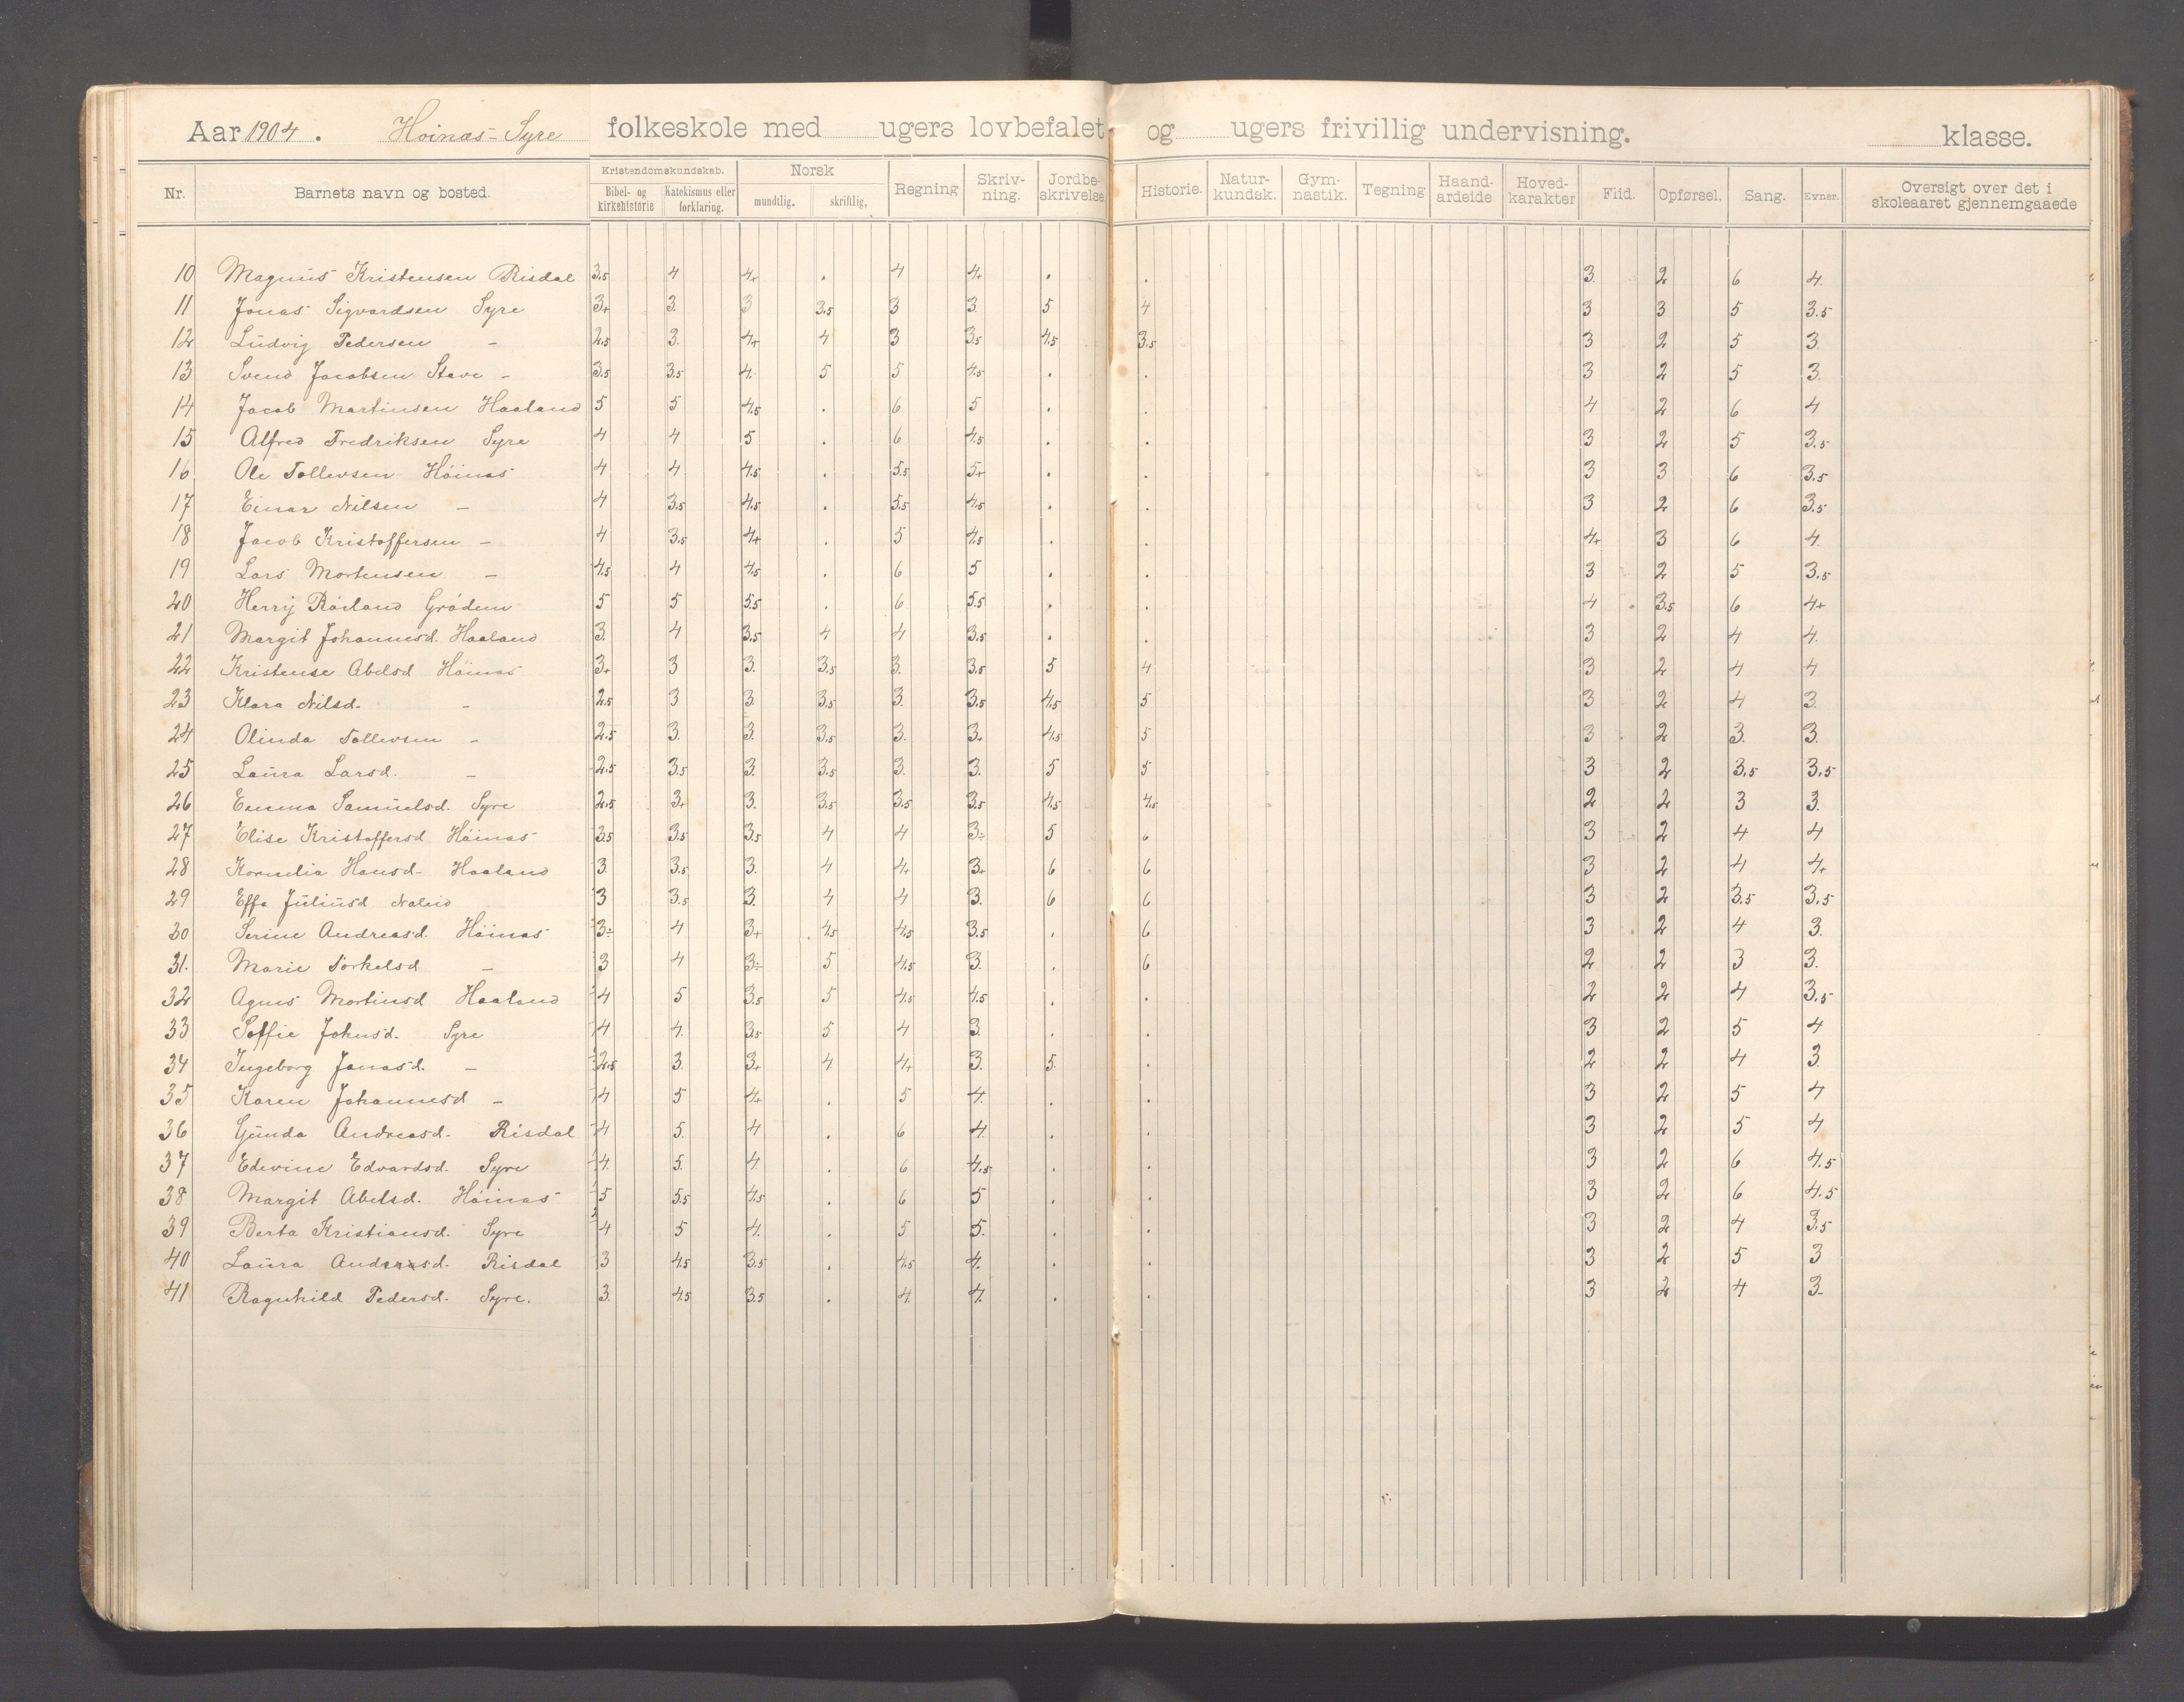 Aar 1904. Hoinæs-Syre folkeskole med ugers lovbefalet og ugers frivillig undervisning. klasse.
Nr. Barnets navn og bosted. Kristendomskundskab. Bibel- og kirkehistorie Katekismus eller forklaring. Norsk mundtlig. skriftlig, Regning Skriv-ning. Jordbe-skrivelse. Historie. Natur-kundsk. Gym-nastik. Tegning Haand-arbeide Hoved-karakter Flid. Opførsel. Sang. Evner. Oversigt over det i skoleaaret gjennemgaaede
10 Magnus Kristensen Risdal 3.5 4 4+ . 4 4+ . . 3. 2 6 4.
11 Jonas Sigvardsen Syre 3+ 3. 3 3.5 3 3. 5 4 3 3 5 3.5
12 Ludvig Pedersen – 2.5 3. 4+ 4 3 3.5 4.5 3.5 3 2 5 3.
13 Svend Jacobsen Stave – 3.5 3.5 4. 5 5 4.5 . . 3 2 5 3.
14 Jacob Martinsen Haaland 5 5 4.5 . 6 5 . . 4 2 6 4
15 Alfred Fredriksen Syre 4 4 5 . 6 4.5 . . 3 2 5 3.5
16 Ole Tollevsen Höinæs 4 4 4.5 . 5.5 5+ . . 3 3 6 3.5
17 Einar Nilsen – 4 3.5 4.5 . 5.5 4.5 . . 3 2 6 3.5
18 Jacob Kristoffersen – 4 3.5 4+ . 5 4.5 . . 4+ 3 6 4.
19 Lars Mortensen – 4.5 4 4.5 . 6 5 . . 3 2 5 3.5
20 Herrÿ Röiland Grödem 5 5 5.5 . 6 5.5 . . 4 3.5 6 4+
21 Margit Johannesd. Haaland 3. 4 3.5 4 4 3.5 . . 3 2 4 4.
22 Kristense Abelsd Höinæs 3+ 3 3. 3.5 3. 3.5 5 4 3 2 4 4
23 Klara Nilsd. – 2.5 3 3. 3.5 3. 3.5 4.5 5 3 2 4 3.
24 Olinda Tollevsen – 2.5 3. 3. 3.5 3. 3+ 4.5 5 3 2 3. 3.
25 Laura Larsd. – 2.5 3.5 3. 3.5 3. 3. 5 5 3 2 3.5 3.5
26 Emma Samuelsd. Syre 2.5 3+ 3. 3.5 3.5 3.5 4.5 4.5 2 2 3 3.
27 Elise Kristoffersd Höinæs 3.5 3.5 3.5 4 4 3÷ 5 6 3 2 4 4
28 Kornelia Hansd. Haaland 3. 3.5 3. 4 4+ 3+ 6 6 3 2 4 4+
29 Effa Juliusd 3 3.5 3. 4 4 3. 6 6 3 2 3.5 3.5
30 Serine Andreasd. Höinæs 3÷ 4 3+ 4.5 4.5 3.5 . 6 3 2 4 3.
31. Marie Torkelsd – 3 4 3÷ 5 4.5 3. . 6 2 2 3 3.
32 Agnes Martinsd Haaland 4 5 3.5 5 4.5 4.5 . . 2 2 4 3.5
33 Soffie Johnsd. Syre 4 4. 3.5 5 4 3. . . 3 2 5 4
34 Ingeborg Jonasd. – 2.5 3. 3+ 4 4+ 3. 5. . 2 2 4 3.
35 Karen Johannesd – 4 5 4+ . 5 4. . . 3 2 5 4
36 Gunda Andreasd. Risdal 4 5. 4 . 6 4. . . 3 2 5 4
37 Edevine Edvardsd. Syre 4. 5. 4. . 6 4.5 . . 3 2 6 4.5
38 Margit Abelsd. Höinæs 5 5.5 4.5 . 6 5 . . 3 2 6 4.5
39 Berta Kristiansd. Syre 4 5 4. . 5 5. . . 3 2 4 3.5
40 Laura Andreasd. Risdal 3 4.5 3.5 . 4.5 4. . . 3 2 5 3
41 Ragnhild Pedersd. Syre. 3. 4.5 3.5 . 4. 4. . . 3 2 4 3-